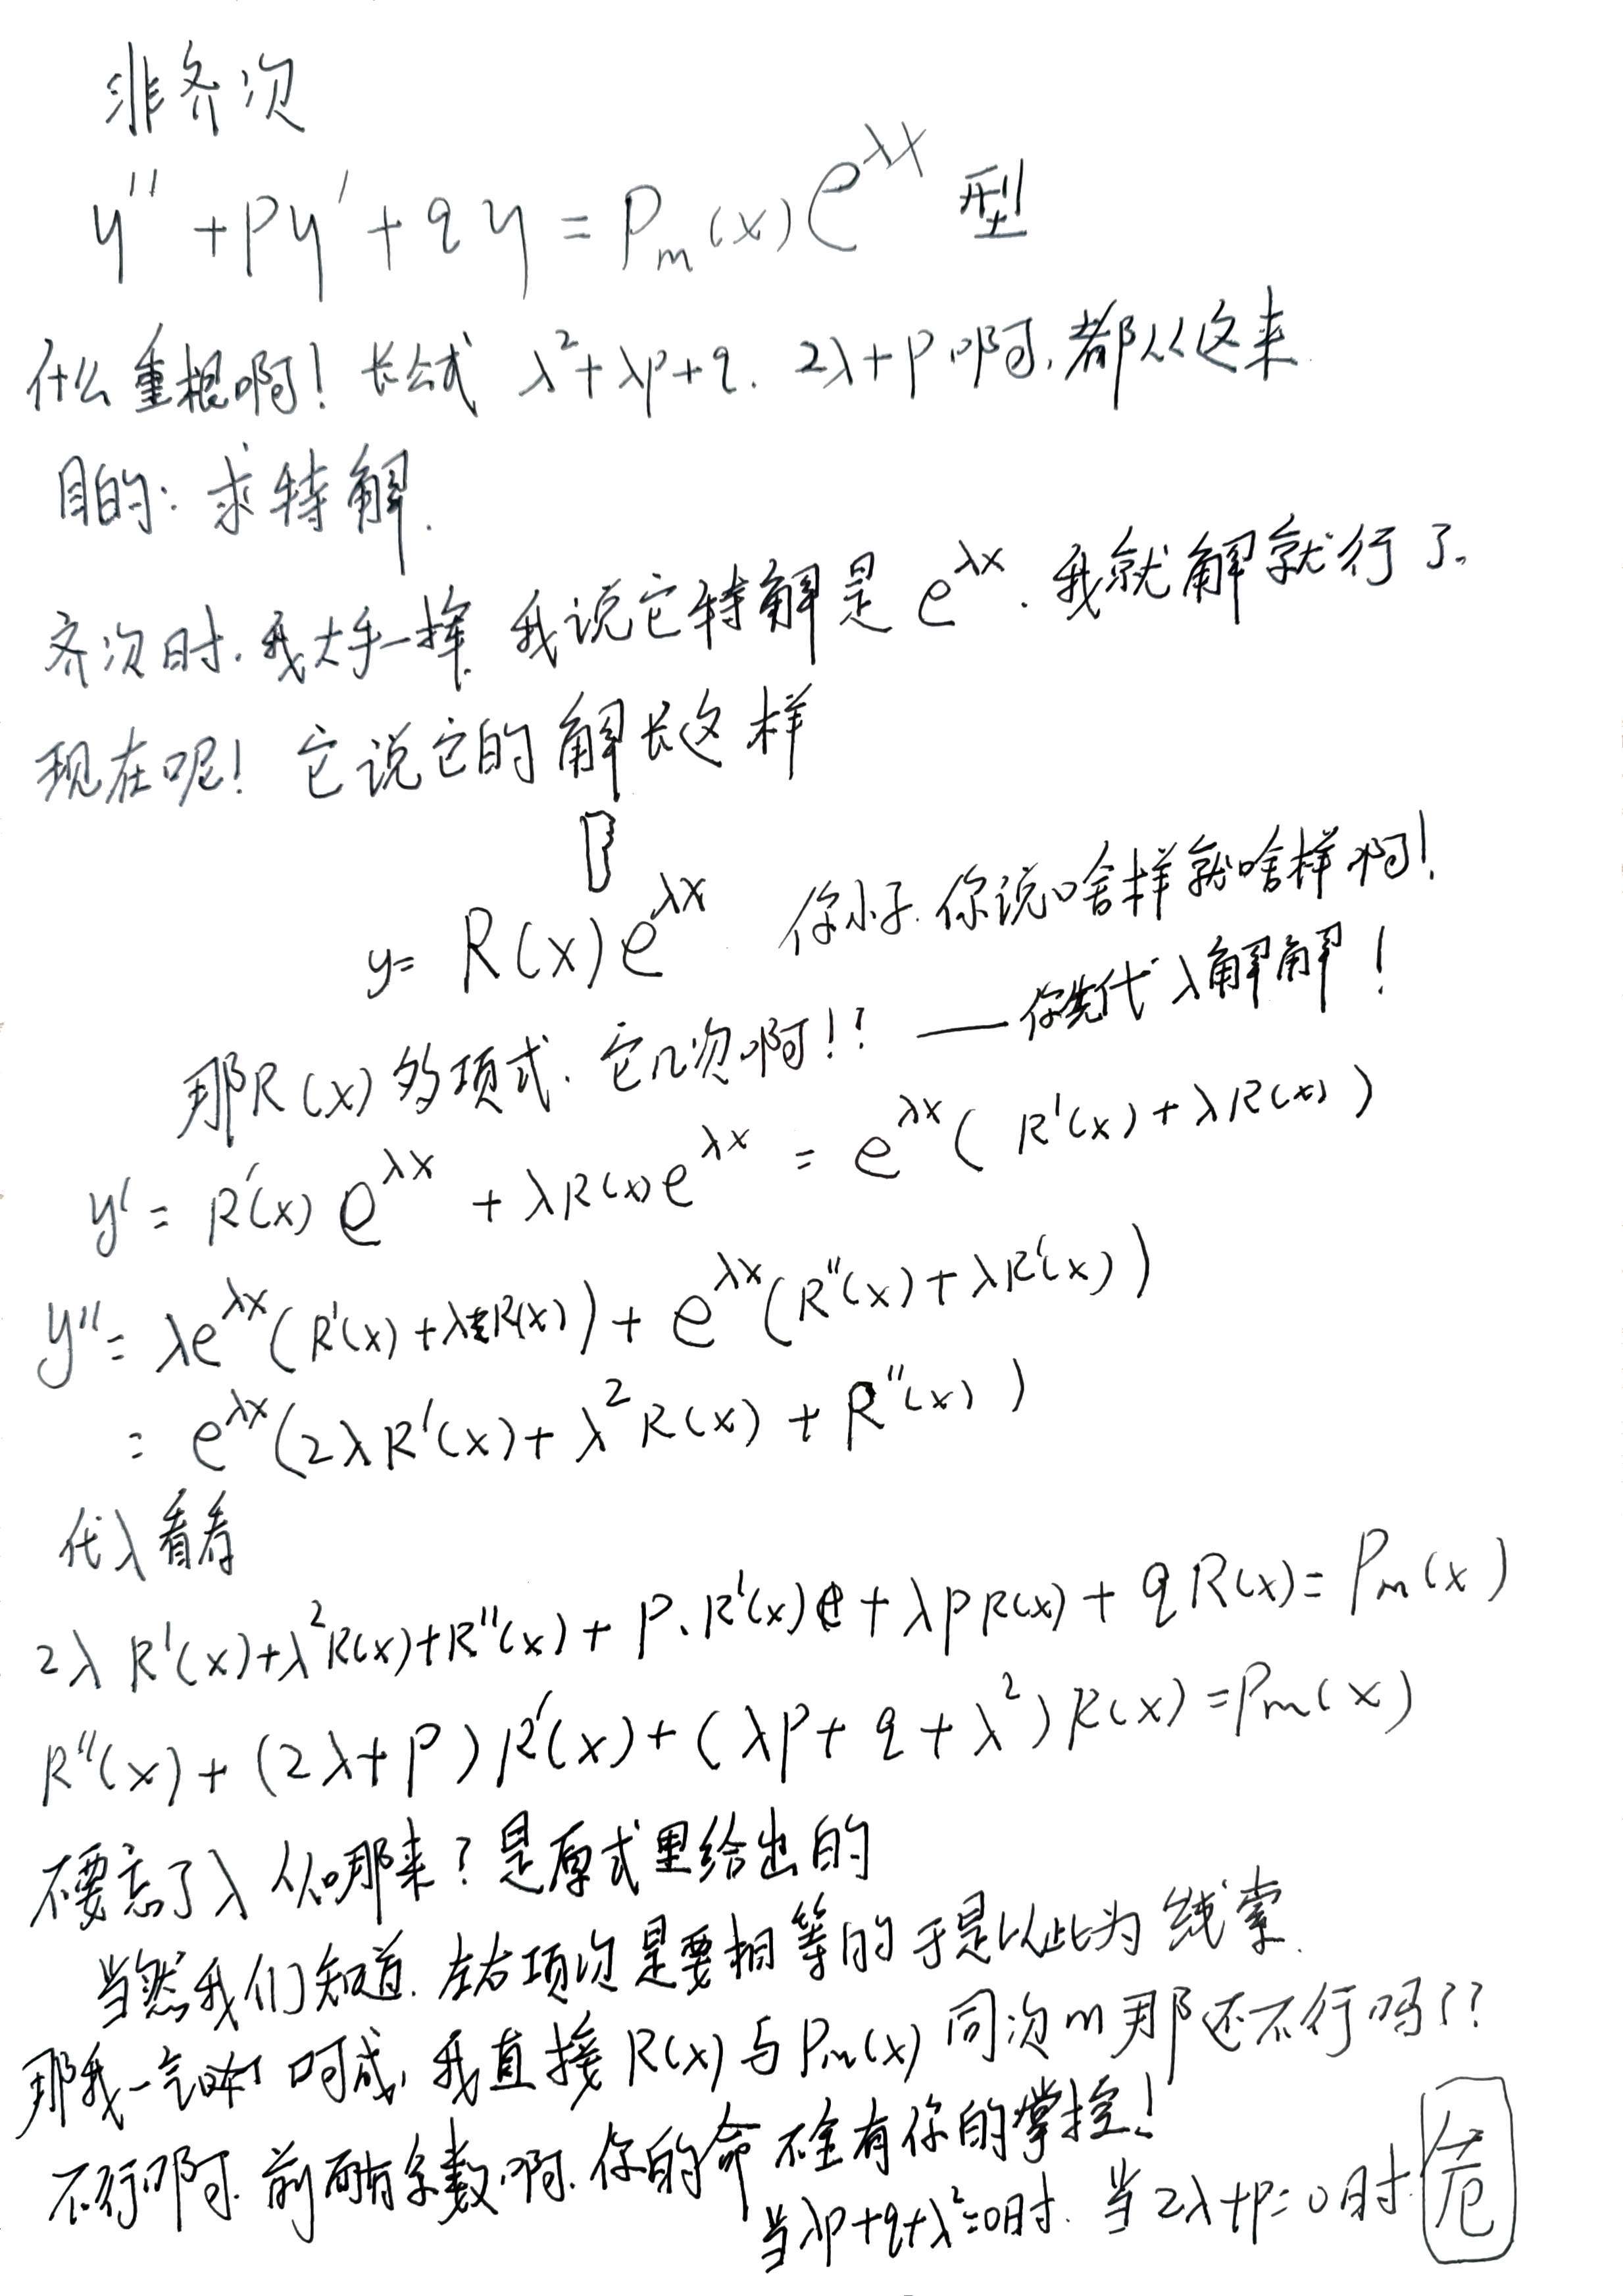 非齐次
y'' + py' + qy = Pm(x)e^λx 型
什么重根啊! 长公式 λ²+λp+q. 2λ+p啊,都从这来.
目的: 求特解.
齐次时.我大手一挥.我说它特解是 e^λx.我就解就行了。
现在呢! 它说它的解长这样
y= R(x)e^λx 你小子.你说啥样就啥样啊!
那R(x)多项式.它几次啊!? ——你先代入解解!
y' = R'(x) e^λx + λR(x)e^λx = e^λx( R'(x) + λR(x) )
y''= λe^λx(R'(x)+λR(x)) + e^λx(R''(x)+λR'(x))
= e^λx(2λR'(x)+ λ²R(x) + R''(x) )
代入看看
2λ R'(x)+λ²R(x)+R''(x) + P.R'(x) + λpR(x) + qR(x)= Pm(x)
R''(x) + (2λ+p) R'(x) + (λp+q+λ²)R(x) = Pm(x)
不要忘了λ从哪来?是原式里给出的
当然我们知道.左右项次是要相等的于是以此为线索.
那我一气呵成,我直接R(x)与Pm(x)同次m那还不行吗??
不行啊.前面有系数啊.你的命不全有你的掌控!
当λp+q+λ²=0时. 当2λ+p=0时. 危